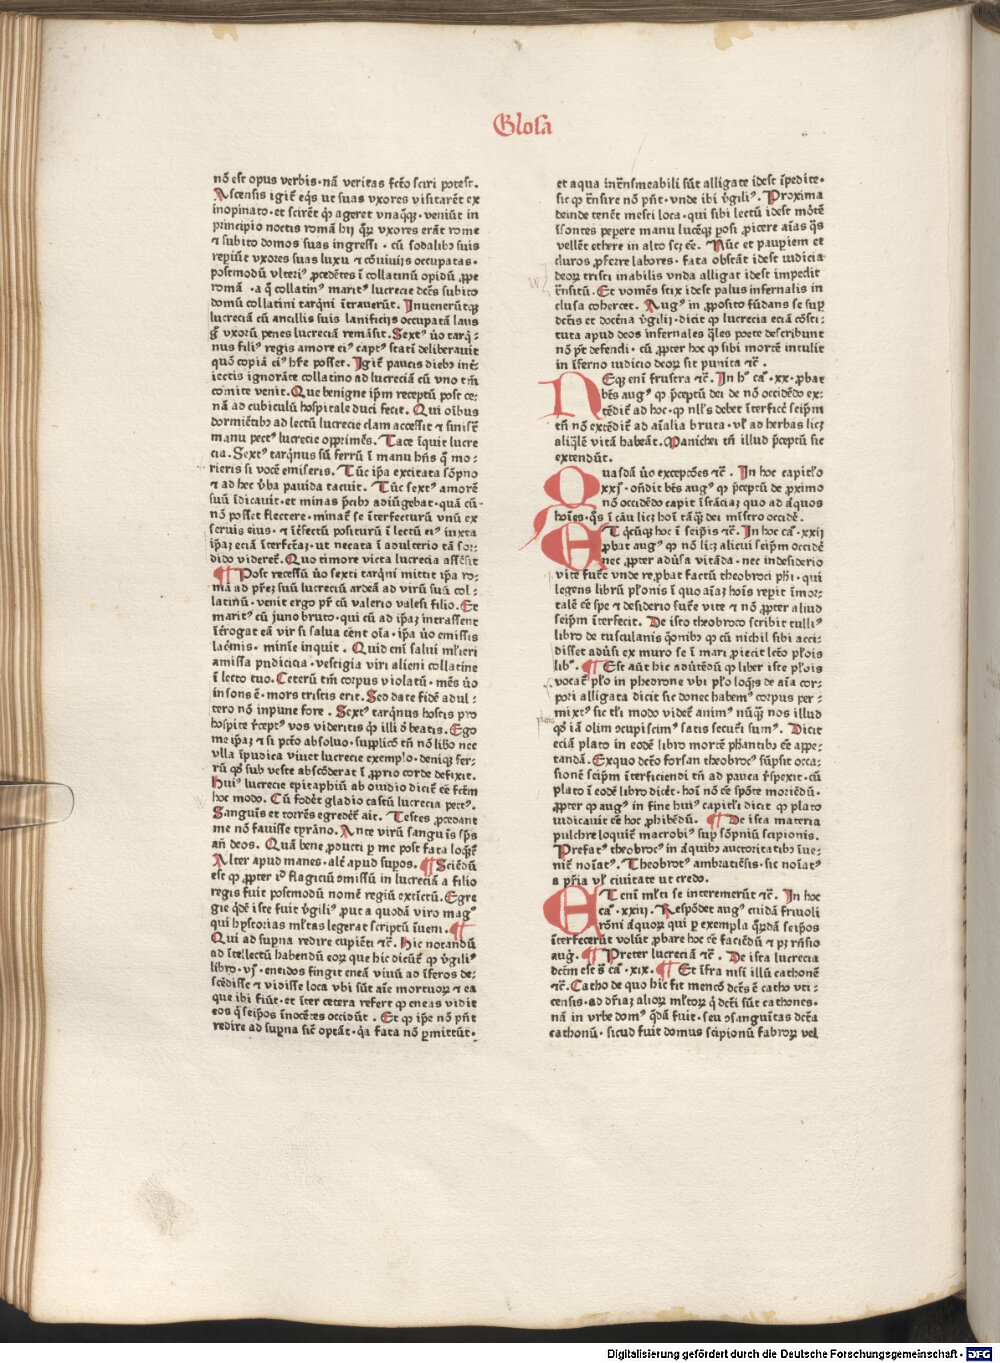 Glosa
nō est opus verbis·nā veritas fcto sciri potest.
Ascensis igit̄ eqͥs ut suas vxores visitarēt ex
inopinato·et scirēt qͥ ageret vnaqꝫ·veniūt in
principio noctis romā hij qͦꝝ vxores erāt rome
⁊ subito domos suas ingressi·cū sodalibꝰ suis
repiūt vxores suas luxu ⁊ cōuiuijs occupatas·
postmodū vlteriꝰ ꝓcedētes ī collatinū opidū ꝓpe
romā·a q̄ collatinꝰ maritꝰ lucrecie dcēs subito
domū collatini tarqͥni ītrauerūt. Inuenerūtqꝫ
lucreciā cū ancillis suis lanificijs occupatā laus
gͦ vxorū penes lucreciā remāsit. Sextꝰ ūo tarqͥ=
nus filiꝰ regis amore eiꝰ captꝰ statī deliberauit
quō copiā eiꝰ hr̄e posset. Igit̄ paucis diebꝰ int̄=
iectis ignorāte collatino ad lucreciā cū vno tm̄
comite venit. Que benigne ip̄m receptū post ce=
nā ad cubiculū hospitale duci fecit. Qui oībus
dormiētibꝰ ad lectū lucrecie clam accessit ⁊ sinist̄
manu pectꝰ lucrecie opprimēs. Tace īquit lucre
cia. Sextꝰ tarqͥnus sū ferrū ī manu hn̄s q̄ mo=
rieris si vocē emiseris. Tūc ip̄a excitata sōpno
⁊ ad hec v̄ba pauida tacuit. Tūc sextꝰ amorē
suū īdicauit·et minas p̄cibꝰ adiūgebat·quā cū=
nō posset flectere·minat̄ se īterfecturū vnū ex
seruis eius·⁊ īt̄fectū positurū ī lectū eiꝰ iuxta
ip̄aꝫ eciā īterfctaꝫ·ut necata ī adulterio tā sor=
dido videret̄. Quo timore victa lucrecia assēsit
¶ Post recessū ūo sexti tarqͥni mittit ip̄a ro=
mā ad pr̄eꝫ suū lucreciū ardeā ad virū suū col=
latinū·venit ergo pr̄ cū valerio valesi filio. Et
maritꝰ cū juno bruto·qui cū ad ip̄aꝫ intrassent
īt̄rogat eā vir si salua eēnt oīa·ip̄a ūo emissis
lac̄mis·minīe inquit. Quid enī salui mlieri
amissa pudicicia·vestigia viri alieni collatine
ī lecto tuo. Ceterū tm̄ corpus violatū·mēs ūo
insons ē·mors tristis erit. Sed date fidē adul=
tero nō inpune fore. Sextꝰ tarqͥnus hostis pro
hospite r̄ceptꝰ vos videritis qͥ illi ō beatis. Ego
me ip̄aꝫ ⁊ si pcto absoluo·supplicō tn̄ nō libo nec
vlla īpudica viuet lucrecie exemplo·deniqꝫ fer=
rū qͥ sub veste abscōderat ī ꝓprio corde defixit.
Huiꝰ lucrecie epitaphiū ab ouidio dicit̄ eē fctm̄
hoc modo. Cū foder̄t gladio castū lucrecia pectꝰ.
Sanguīs et torrēs egredēt̄ ait. Testes ꝓcedant
me nō fauisse tyrāno. Ante virū sanguīs spūs
an̄ deos. Quā bene ꝓducti ꝑ me post fata loqͥnt̄
Alter apud manes·alt̄ apud suꝑos. ¶ Sciēdū
est qͥ ꝓpter id̄ flagiciū ꝯmissū in lucreciā a filio
regis fuit postmodū nomē regiū extīctū. Egre
gie qͥdē iste fuit v̄giliꝰ put a quodā viro magͦ
qui hystorias mltas legerat scriptū īueni. ¶
Qui ad supna redire cupiēti ⁊c̄. Hic notandū
ad ītellectū habendū eorꝫ que hic dicūt̄ qͥ v̄giliꝰ
libro·vjͦ·eneidos fingit eneā viuū ad īferos de=
scēdisse ⁊ vidisse loca vbi sūt aīe mortuoꝝ ⁊ ea
que ibi fiūt·et īter cetera refert qͥ eneas vidit
eos q̄ seip̄os īnocētes occidūt. Et qͥ ip̄e nō pn̄t
redire ad supna sic̄ optāt·qͣa fata nō ꝑmittūt·
et aqua inr̄nsmeabili sūt alligate idest īpedite·
sic qͥ r̄nsire nō pn̄t·vnde ibi v̄giliꝰ. Proxima
deinde tenēt mesti loca·qui sibi lectū idest mōtē
īsontes pepere manu lucēqꝫ ꝑosi ꝓicere aīas qͣs
vellēt ethere in alto scꝫ eē. Nūc et paupiem et
duros pferre labores·fata obstāt idest iudicia
deoꝝ tristi inabilis vnda alligat idest impedit
r̄nsitū. Et vomēs stix idest palus infernalis in
clusa cohercet. Augꝰ in ꝓposito fūdans se suꝑ
dctīs et doctrīa v̄gilij·dicit qͥ lucrecia eciā cōsti=
tuta apud deos infernales q̄les poete describunt
nō pt̄ defendi·cū ꝓpter hoc qͥ sibi mortē intulit
in īferno iudicio deoꝝ sit punita ⁊c̄.
NEqꝫ enī frustra ⁊c̄. In hͦ caͦ·xx·ꝓbat
btēs augꝰ qͥ p̄ceptū dei de nō occidēdo ex=
tēdit̄ ad hoc·qͥ nllꝰs debet īterficē seip̄m
tn̄ nō extēdit̄ ad aīalia bruta·vl̄ ad herbas licꝫ
aliq̄le vitā habeāt. Manichei tn̄ illud p̄ceptū sic
extendūt.
Quasdā ūo excepcōes ⁊c̄. In hoc capitlo
xxjͦ·ondit btēs augꝰ qͥ p̄ceptū de ꝓximo
nō occidēdo capit īstāciaꝫ quo ad aͥquos
hoīes·qͣs ī cāu licꝫ hoī tāqͣꝫ dei mīstro occidē.
ET qͥcūqꝫ hoc ī seip̄is ⁊c̄. In hoc caͦ·xxij
ꝓbat augꝰ qͥ nō licꝫ alicui seip̄m occidē
nec ꝓpter adūsa vitāda·nec indesiderio
vite fut̄e vnde reꝓbat factū theobroci phi·qui
legens librū platonis ī quo aīaꝫ hoīs repit īmor=
talē eē spe ⁊ desiderio fut̄e vite ⁊ nō ꝓpter aliud
seip̄m īterfecit. De isto theobroco scribit tulliꝰ
libro de tusculanis qͦonibꝰ qͥ cū nichil sibi acci=
disset adūsi ex muro se ī mari ꝓiecit lecto platois
libͦ. ¶ Est aūt hic adūtēdū qͥ liber iste platois
vocat̄ plato in phedrone vbi plato loqͥns de aīa cor=
pori alligata dicit sic donec habemꝰ corpus per=
mixtꝰ sic tli modo videt̄ animꝰ nūqͣꝫ nos illud
qͥ iā olim ꝯcupiscimꝰ satis secuti sumꝰ. Dicit
eciā plato in eodē libro mortē phantibꝰ eē appe=
tandā. Exquo dcto forsan theobrocꝰ sūpsit occa=
sionē seip̄m īterficiendi tn̄ ad pauca r̄spexit·cū
plato ī eodē libro dicat·hoī nō eē spōte moriēdū·
ꝓpter qͥ augꝰ in fine huiꝰ capitli dicit qͥ plato
iudicauit eē hoc ꝓhibēdū. ¶ De ista materia
pulchre loquit̄ macrobiꝰ sup sōpniū scipionis.
Prefatꝰ theobrocꝰ in aͥquibꝫ auctoritatibꝰ īue=
nit̄ noīatꝰ. Theobrotꝰ ambraciēsis·sic noīatꝰ
a pr̄ia vl̄ ciuitate ut credo.
ET enī mlti se interemerūt ⁊c̄. In hoc
caͦ·xxiij. Respōdet augꝰ cuidā friuoli
rōni aͥquoꝝ qui ꝑ exempla qͦrūdā seip̄os
īterfecerūt volūt ꝓbare hoc eē faciēdū ⁊ pꝫ rn̄sio
augͥ. ¶ Preter lucreciā ⁊c̄. De ista lucrecia
dctm̄ est sͣ caͦ·xix. ¶ Et īfra nisi illū cathonē
⁊c̄. Catho de quo hic fit mencō dctūs ē catho vti=
censis·ad dr̄iaꝫ alioꝝ mltoꝝ q̄ dcti sūt cathones·
nā in vrbe domꝰ qͦdā fuit·seu ꝯsanguītas dcta
cathonū·sicud fuit domus scipionū fabroꝝ vel
Digitalisierung gefördert durch die Deutsche Forschungsgemeinschaft - DFG